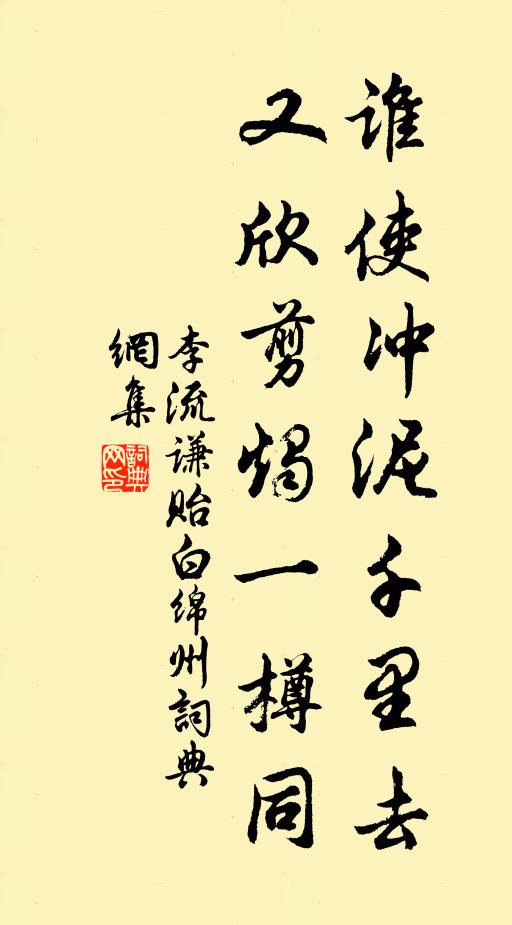 谁使冲泥千里去
又欣剪烛一樽同
李流谦贻白绵州詞典
網集
詞典
网印